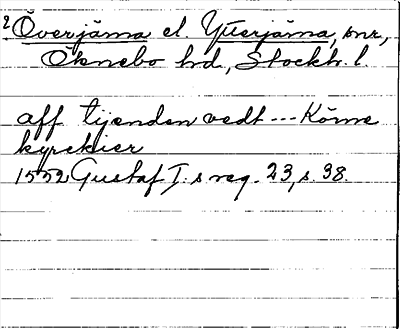 2 Överjärna el. Ytterjärna, snr,
Öknebo hd, Stockh. l.
aff tijenden vedt --- Körne
kyrckier
1552 Gustaf I:s reg. 23, s. 38.